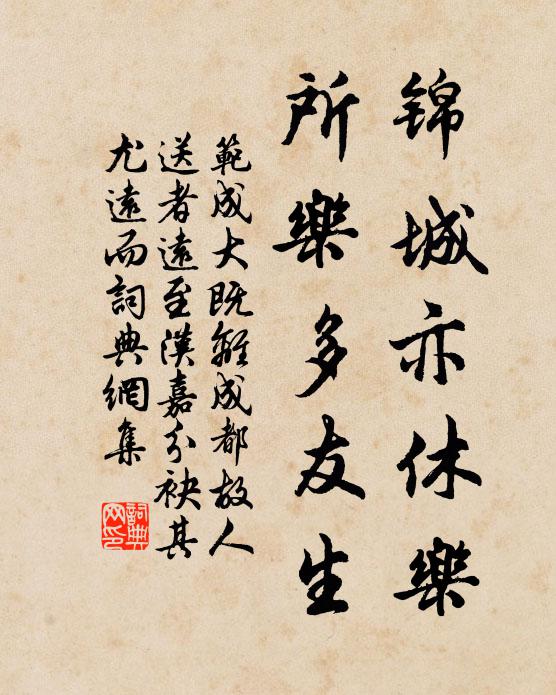 锦城亦休樂
所樂多友生
範成大既離成都故人
送者遠至漢嘉分袂其
尤遠而詞典網集
詞典
网印